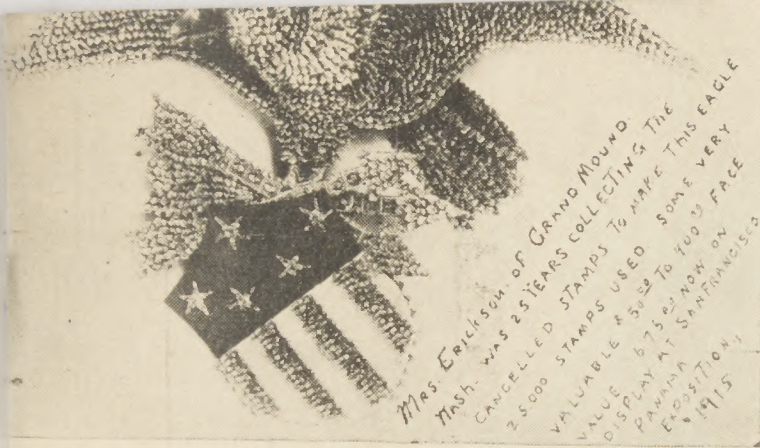 MRS. ERICKSON. OF GRAND MOUND.
WASH. WAS 25 YEARS COLLECTING THE
CANCELLED STAMPS TO MAKE THIS EAGLE
25000 STAMPS USED SOME VERY
VALUABLE $50 00 TO 400 00 FACE
VALUE 675 00 NOW ON
DISPLAY AT SANFRANCISCO
PANAMA
EXPOSITION
1915